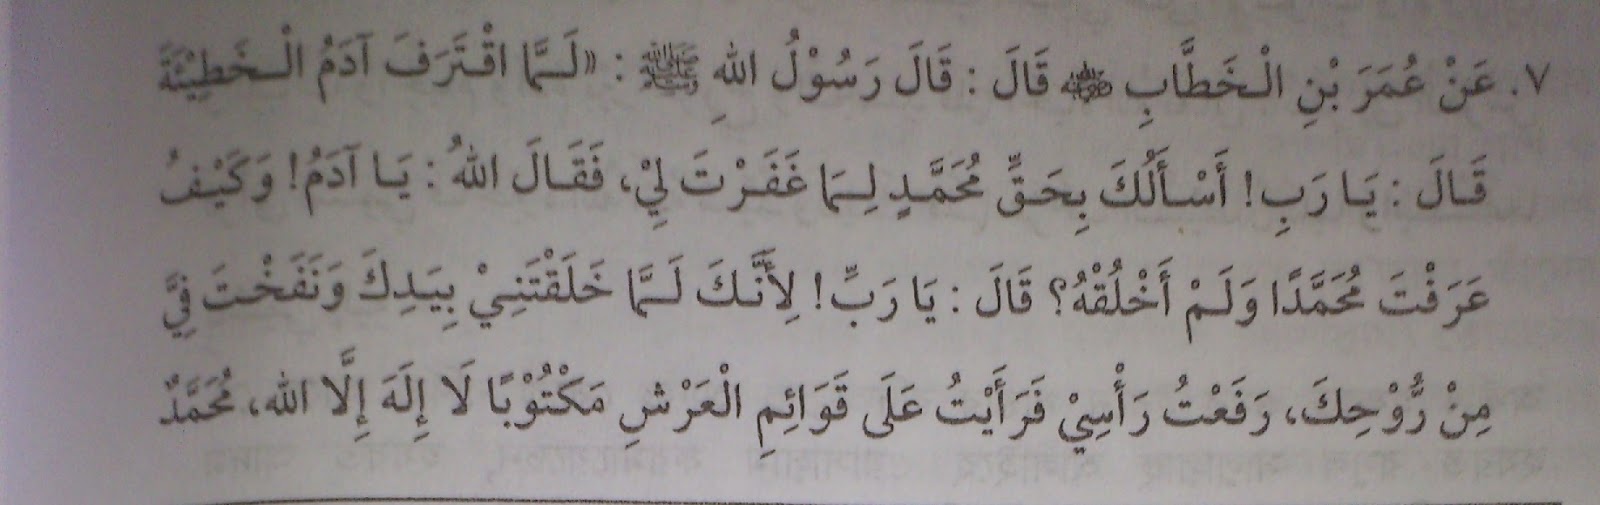 ٧. عَنْ عُمَرَ بْنِ الْخَطَّابِ ﵁ قَالَ : قَالَ رَسُوْلُ اللهِ ﷺ : «لَمَّا اقْتَرَفَ آدَمُ الْخَطِيْئَةَ
قَالَ : يَا رَبِ! أَسْأَلُكَ بِحَقِّ مُحَمَّدٍ لِمَا غَفَرْتَ لِيْ، فَقَالَ اللهُ : يَا آدَمُ! وَكَيْفُ
عَرَفْتَ مُحَمَّدًا وَلَمْ أَخْلُقْهُ؟ قَالَ : يَا رَبِّ! لِأَنَّكَ لَمَّا خَلَقْتَنِيْ بِيَدِكَ وَنَفَخْتَ فِيَّ
مِنْ رُّوْحِكَ، رَفَعْتُ رَأْسِيْ فَرَأَيْتُ عَلَى قَوَائِمِ الْعَرْشِ مَكْتُوْبًا لَا إِلَهَ إِلَّا الله، مُحَمَّدٌ